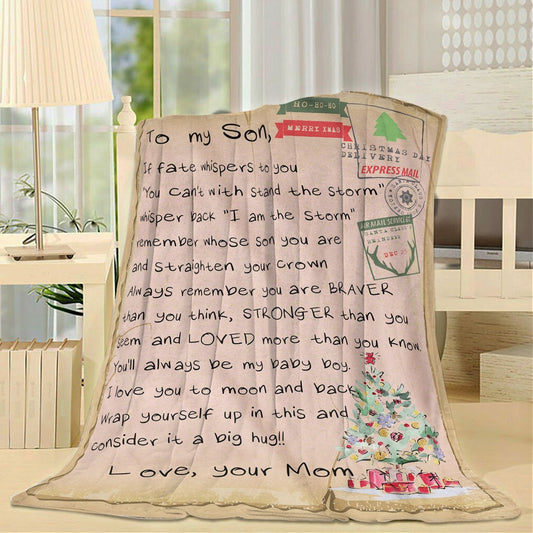 HO-HO-HO
MERRY XMAS
CHRISTMAS DAY
DELIVERY
EXPRESS MAIL
AIR MAIL SERVICE BY
SANTA CLAUS'
REINDEER
DEC 25
To my Son,
If fate whispers to you
"You can't with stand the storm"
whisper back "I am the storm"
remember whose son you are
and straighten your crown
Always remember you are BRAVER
than you think, STRONGER than you
seem and LOVED more than you know.
You'll always be my baby boy.
I love you to moon and back
Wrap yourself up in this and
consider it a big hug!!
Love, your Mom